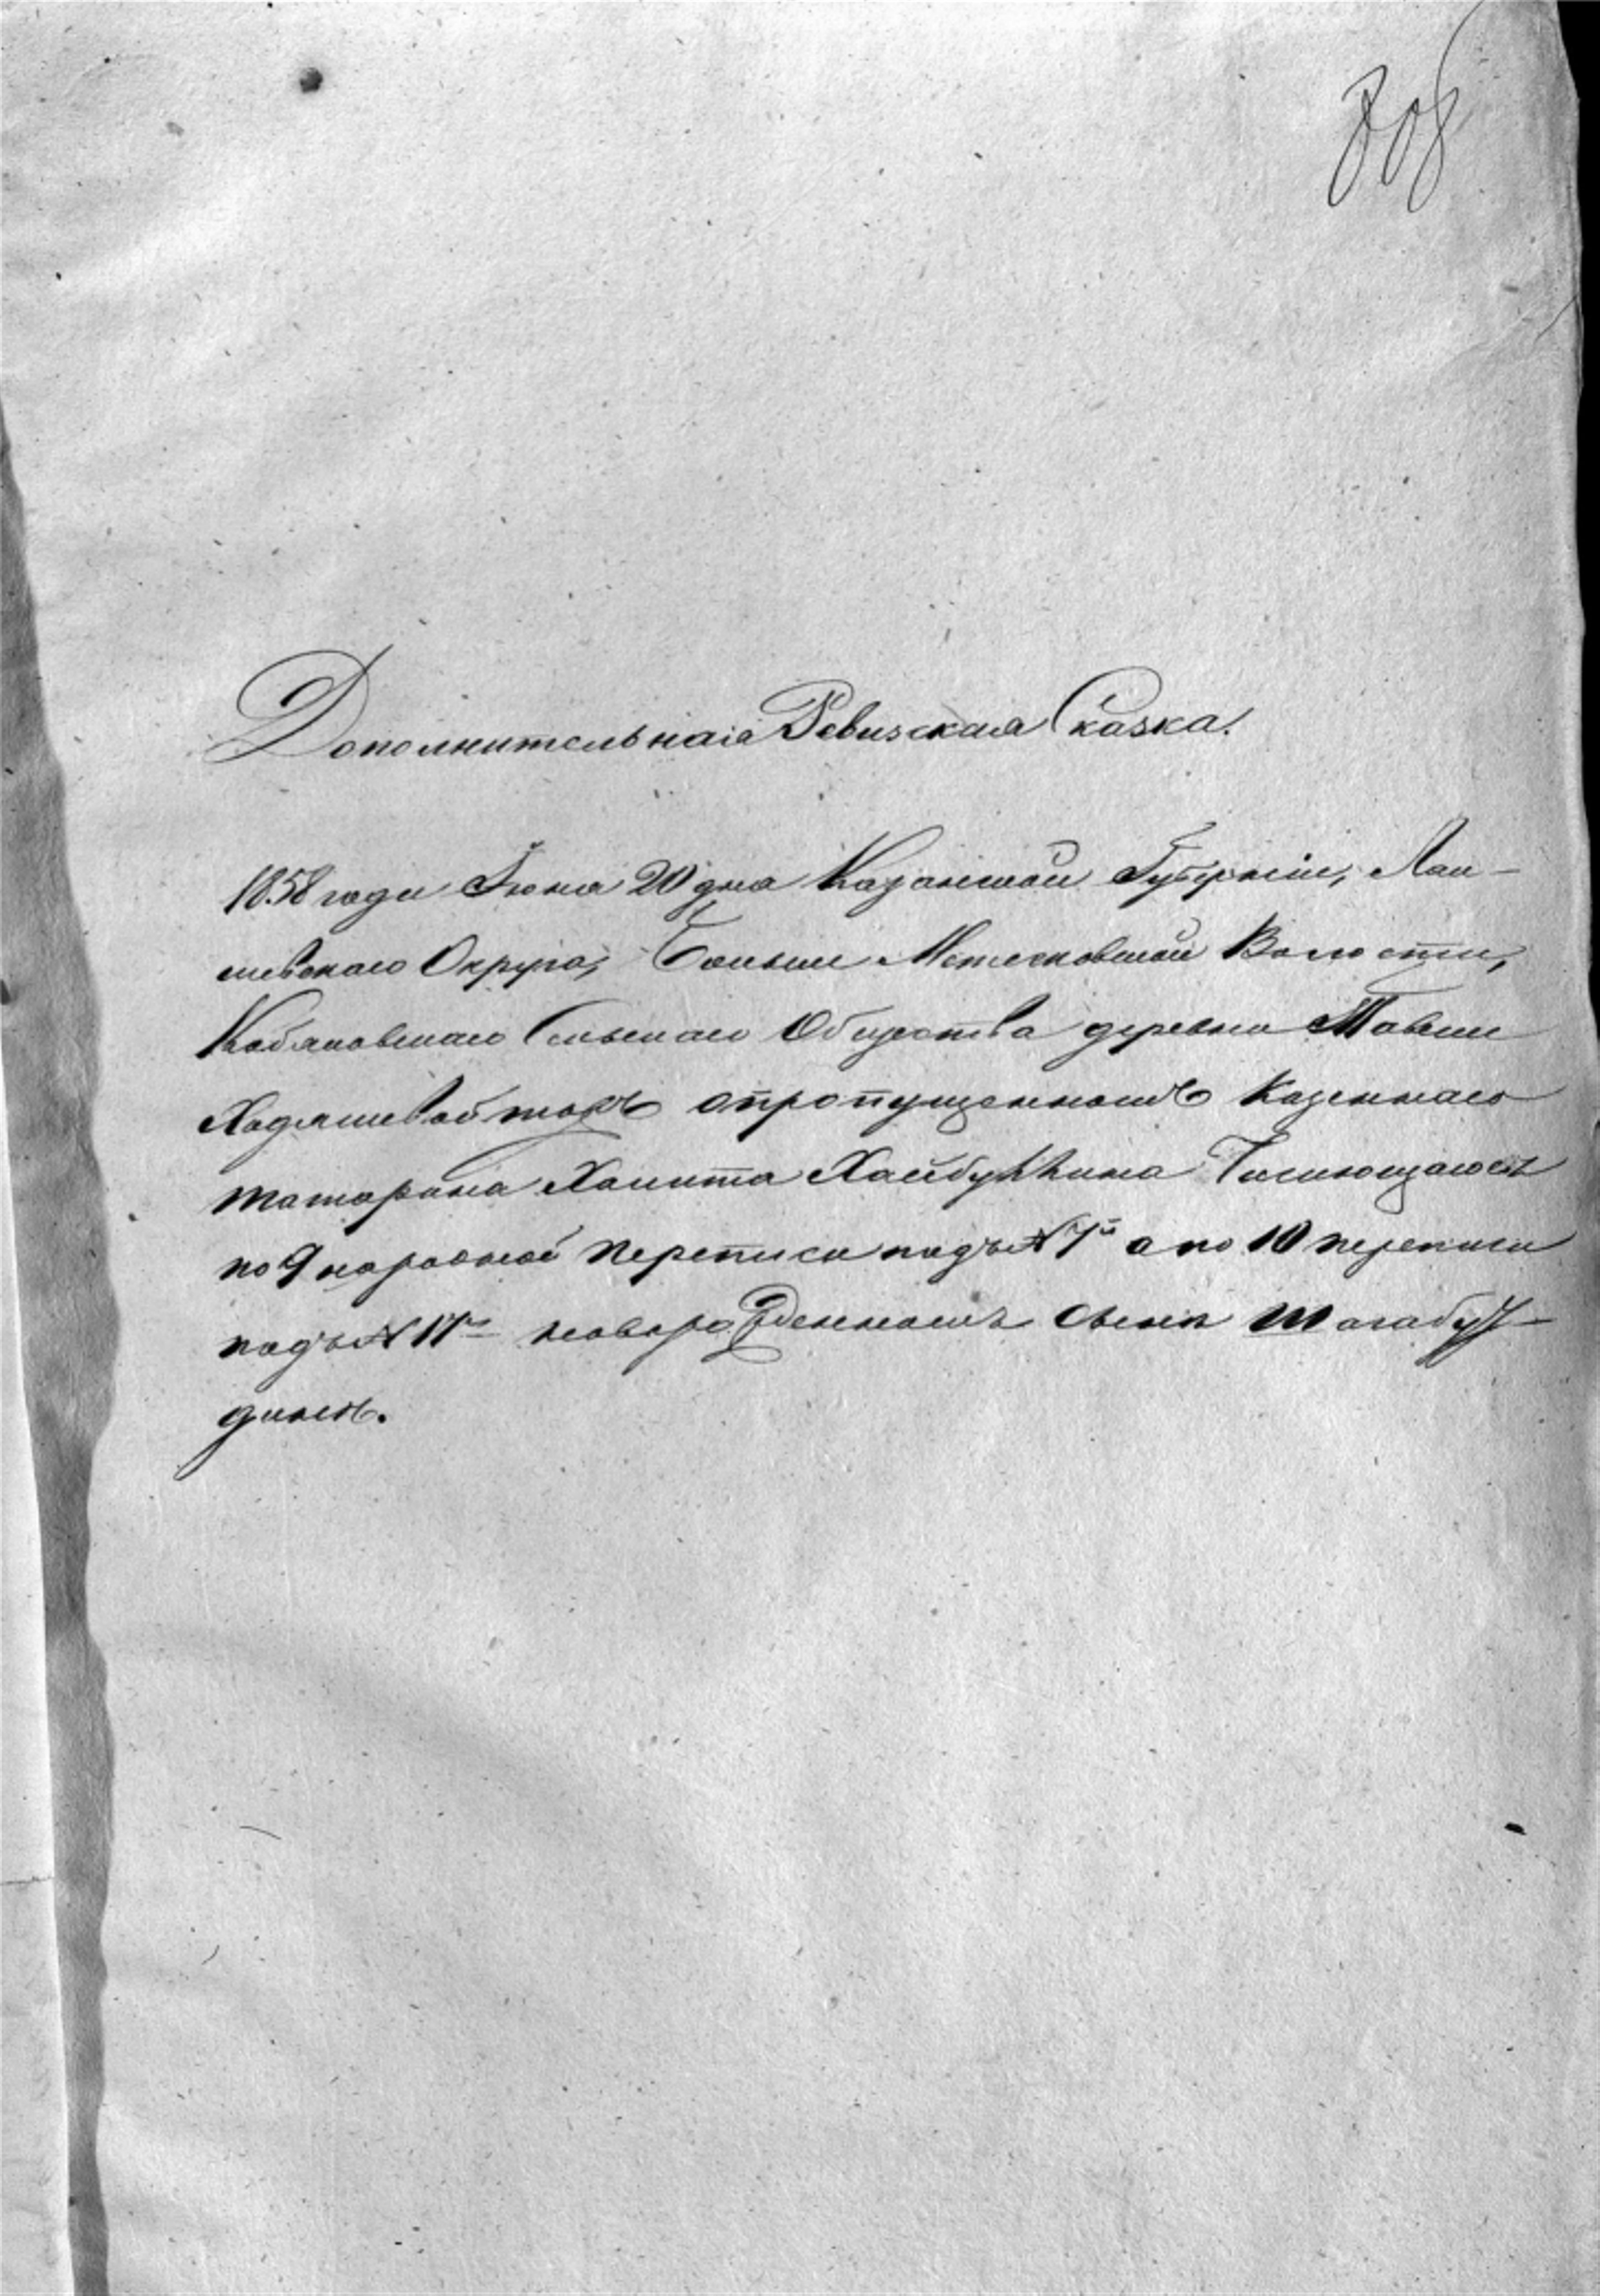 808
Дополнительная Ревизская Сказка.
1858 года Іюня 20 дня Казанской Губерніи, Лаи-
шевскаго Округа, Больше Метесковской Волости,
Кобяковскаго Сельскаго Общества деревни
Ходяшевой тожъ о пропущенномъ казеннаго
татарина Хамита Хайбуллина
по 9 народной переписи подъ № 7й а по 10 переписи
подъ № новорожденномъ сынѣ Шагабут-
динѣ.